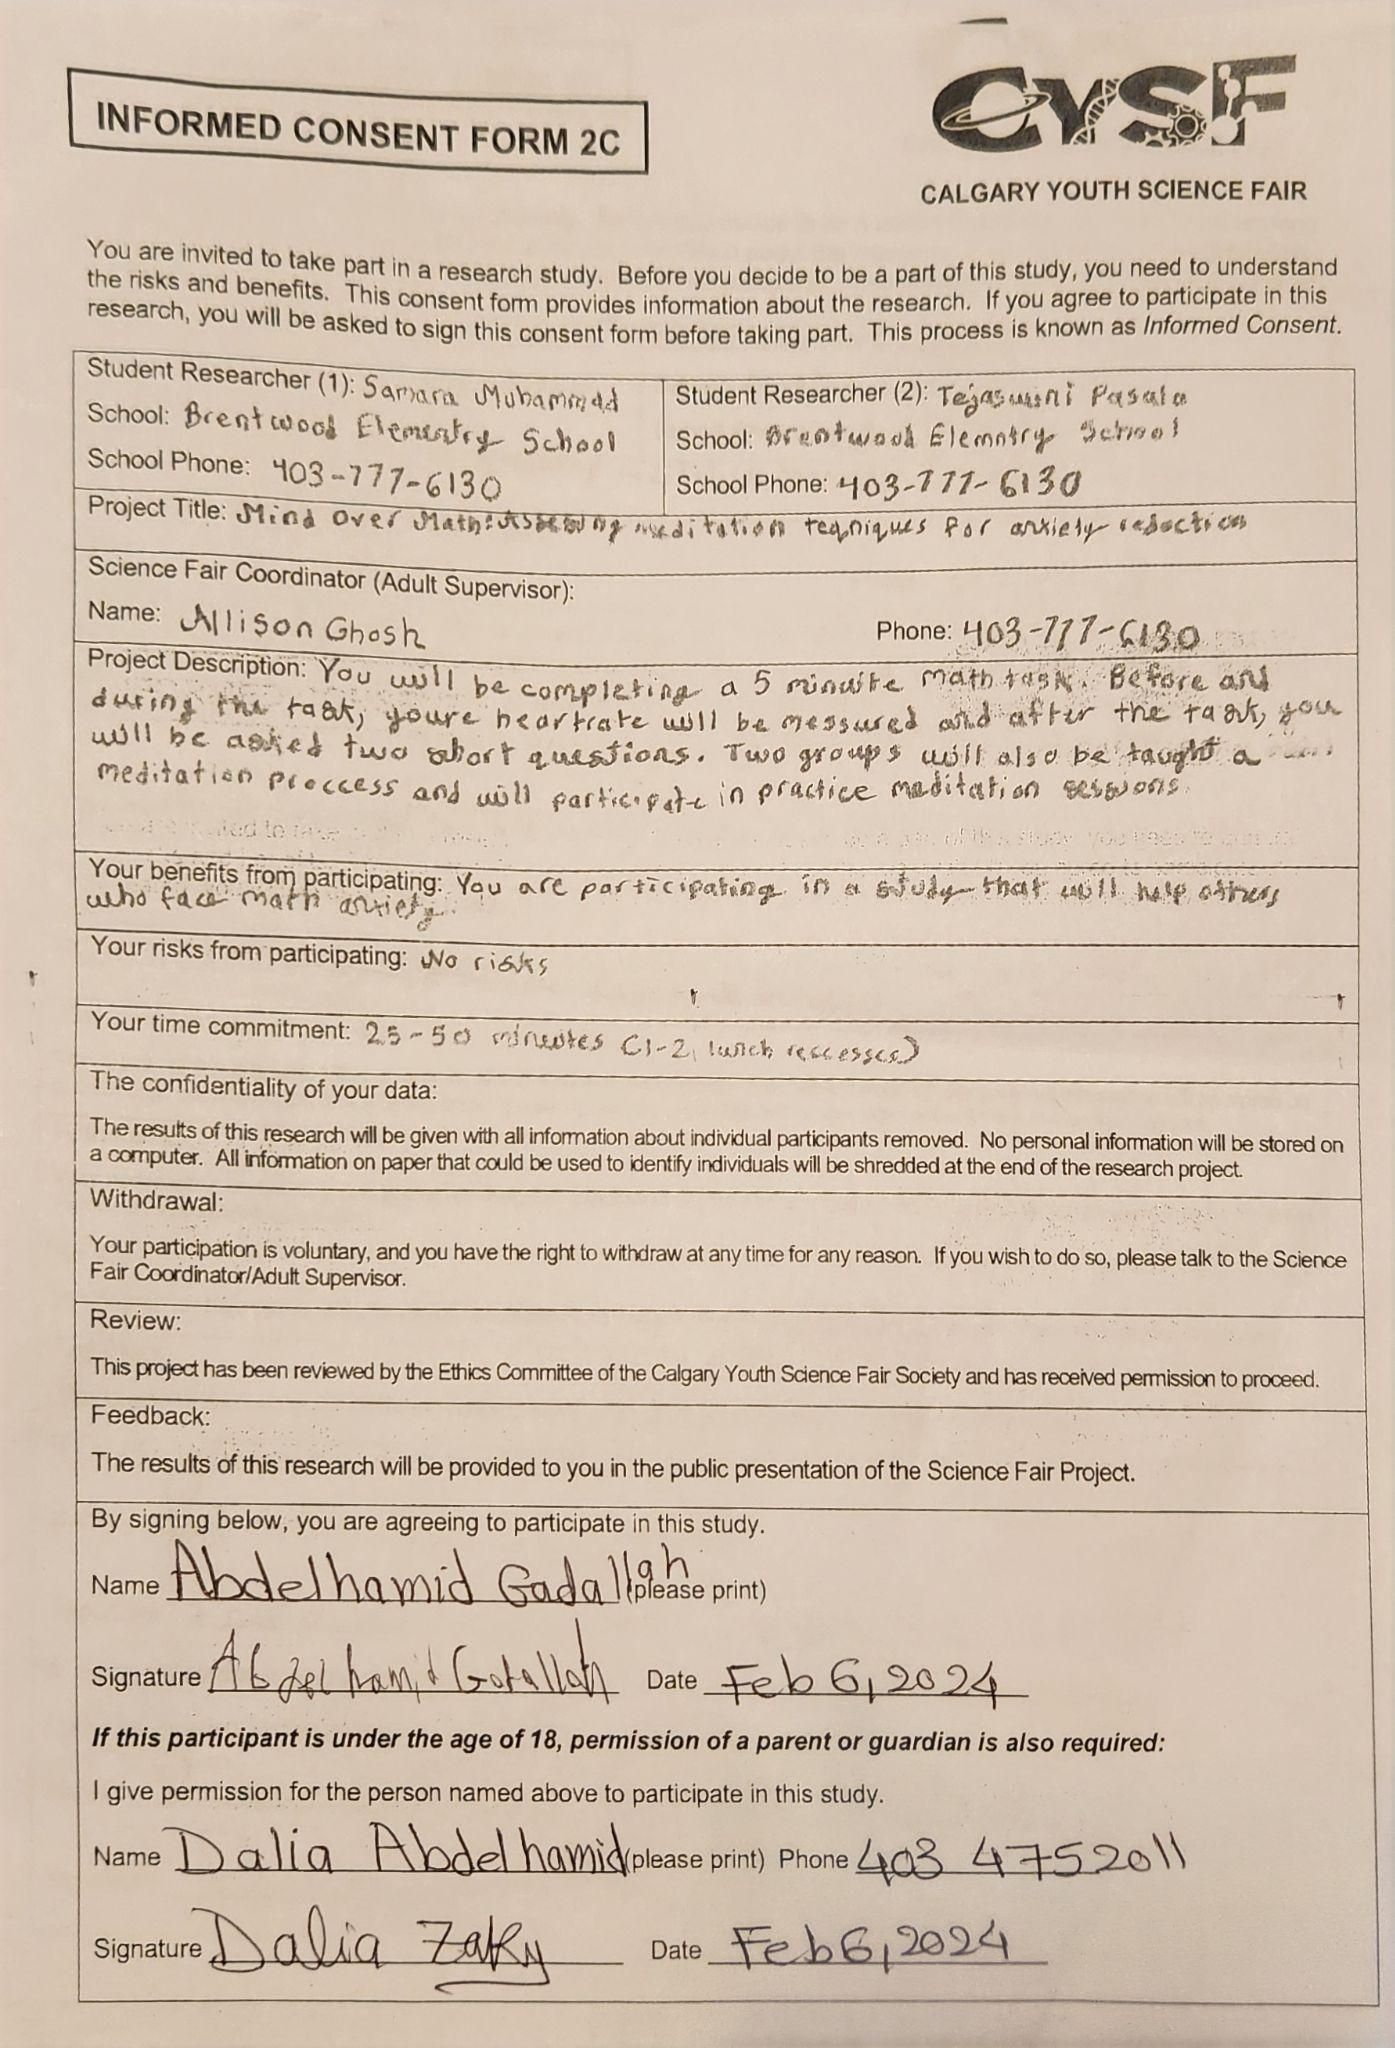 INFORMED CONSENT FORM 2C
CYSF
CALGARY YOUTH SCIENCE FAIR
You are invited to take part in a research study. Before you decide to be a part of this study, you need to understand
the risks and benefits. This consent form provides information about the research. If you agree to participate in this
research, you will be asked to sign this consent form before taking part. This process is known as Informed Consent.
Student Researcher (1): Samara Muhammad
School: Brentwood Elementry School
School Phone: 403-777-6130
Student Researcher (2): Tejaswini Pasala
School: Brentwood Elemntry School
School Phone: 403-777-6130
Project Title: Mind Over Math: Assessing meditation teqniques for anxiety reduction
Science Fair Coordinator (Adult Supervisor):
Name: Allison Ghosh Phone: 403-777-6130
Project Description: You will be completing a 5 minuite math task. Before and
during the task, youre heartrate will be messured and after the task, you
will be asked two short questions. Two groups will also be taught a
meditation proccess and will participate in practice meditation sessions.
Your benefits from participating: You are participating in a study that will help others
who face math anxiety.
Your risks from participating: No risks
Your time commitment: 25-50 minuites (1-2 lunch reccesses)
The confidentiality of your data:
The results of this research will be given with all information about individual participants removed. No personal information will be stored on
a computer. All information on paper that could be used to identify individuals will be shredded at the end of the research project.
Withdrawal:
Your participation is voluntary, and you have the right to withdraw at any time for any reason. If you wish to do so, please talk to the Science
Fair Coordinator/Adult Supervisor.
Review:
This project has been reviewed by the Ethics Committee of the Calgary Youth Science Fair Society and has received permission to proceed.
Feedback:
The results of this research will be provided to you in the public presentation of the Science Fair Project.
By signing below, you are agreeing to participate in this study.
Name Abdelhamid Gadallah (please print)
Signature Abdelhamid Gadallah Date Feb 6, 2024
If this participant is under the age of 18, permission of a parent or guardian is also required:
I give permission for the person named above to participate in this study.
Name Dalia Abdelhamid (please print) Phone 403 4752011
Signature Dalia Zaky Date Feb 6, 2024